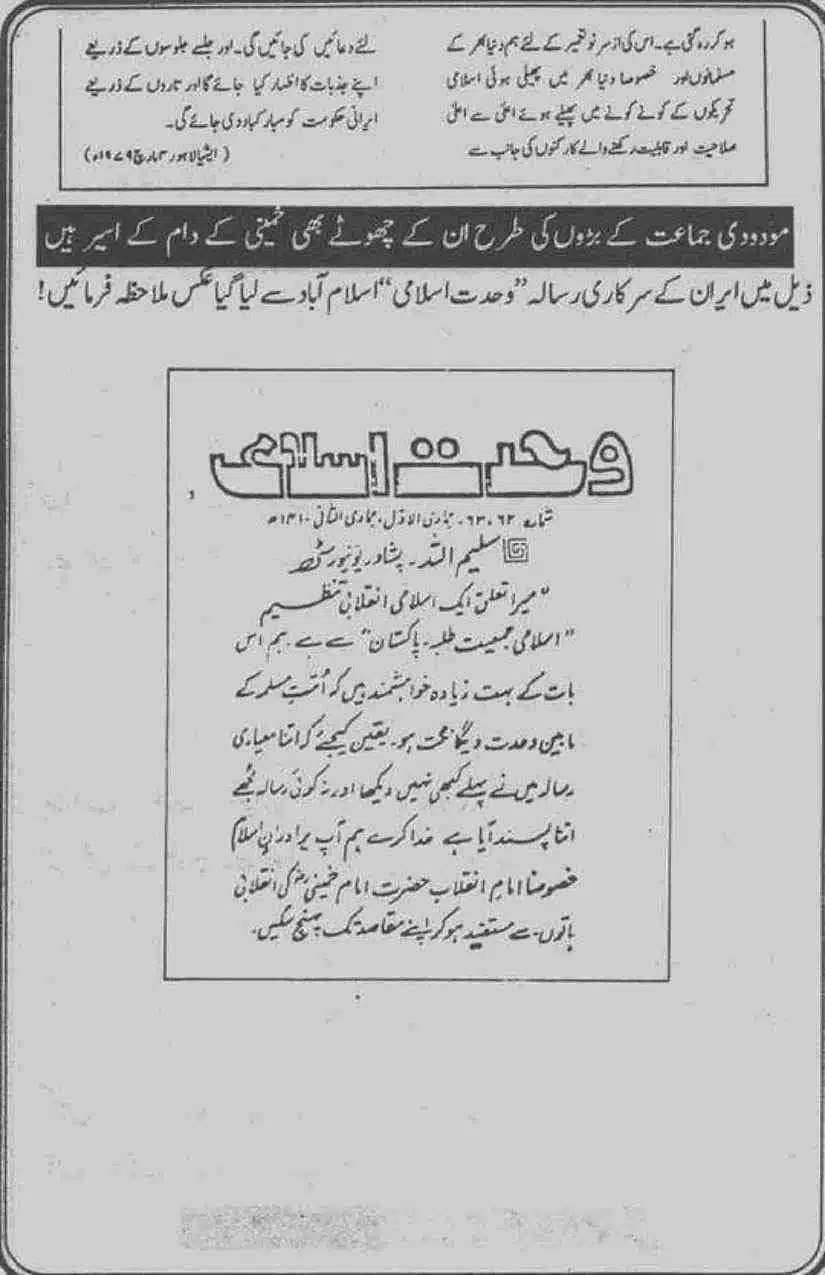 ہو کر رہ گئی ہے۔ اس کی از سر نو تعمیر کے لئے ہم دنیا بھر کے
مسلمانوں اور خصوصا دنیا بھر میں پھیلی ہوئی اسلامی
تحریکوں کے کونے کونے میں پھیلے ہوئے اعلیٰ سے اعلیٰ
صلاحیت اور قابلیت رکھنے والے کارکنوں کی جانب سے
لئے دعائیں کی جائیں گی۔ اور جلسے جلوسوں کے ذریعے
اپنے جذبات کا اظہار کیا جائے گا اور تاروں کے ذریعے
ایرانی حکومت کو مبارکباد دی جائے گی۔
(ایشیا لاہور ۳ مارچ ۱۹۷۹ء)
مودودی جماعت کے بڑوں کی طرح ان کے چھوٹے بھی خمینی کے دام کے اسیر ہیں
ذیل میں ایران کے سرکاری رسالہ ”وحدت اسلامی“ اسلام آباد سے لیا گیا عکس ملاحظہ فرمائیں!
وحدت اسلامی
شمارہ ۶۲،۶۳۔ جمادی الاول، جمادی الثانی ۱۴۱۰ھ
سلیم اللہ۔ پشاور یونیورسٹی
”میرا تعلق ایک اسلامی انقلابی تنظیم
”اسلامی جمعیت طلبہ۔ پاکستان“ سے ہے۔ ہم اس
بات کے بہت زیادہ خواہشمند ہیں کہ اُمّتِ مسلمہ کے
مابین وحدت و یگانگت ہو۔ یقین کیجئے کہ اتنا معیاری
رسالہ میں نے پہلے کبھی نہیں دیکھا اور نہ کوئی رسالہ مجھے
اتنا پسند آیا ہے خدا کرے ہم آپ برادرانِ اسلام
خصوصاً امامِ انقلاب حضرت امام خمینیؒ کی انقلابی
باتوں سے مستفید ہو کر اپنے مقاصد تک پہنچ سکیں۔